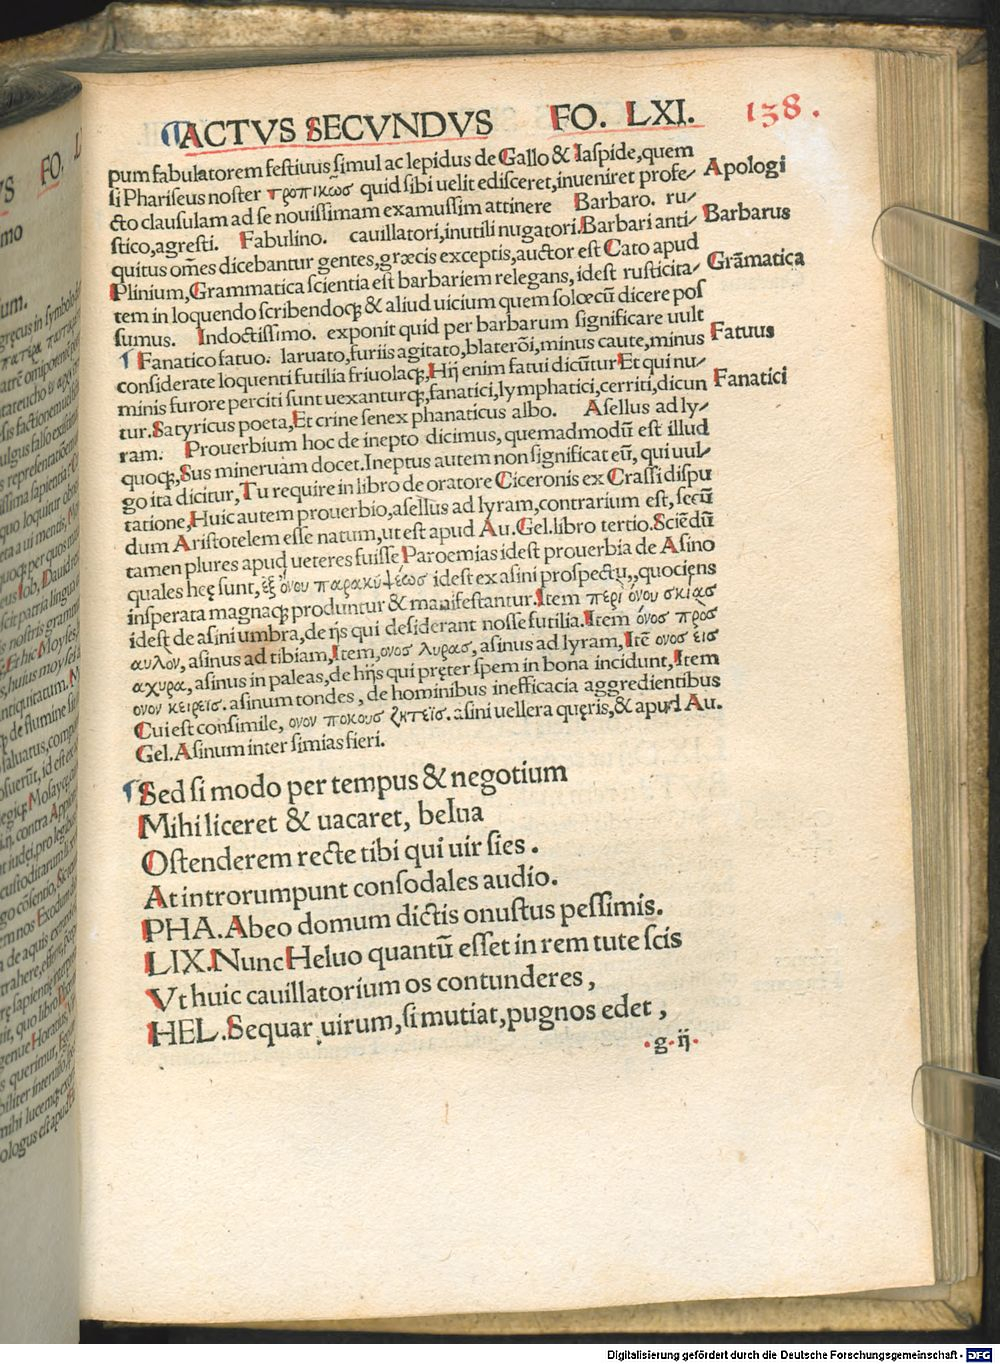 ¶ACTVS SECVNDVS FO. LXI. 138.
pum fabulatorem festiuus simul ac lepidus de Gallo & Iaspide, quem
si Phariseus noster τροπικῶσ quid sibi uelit edisceret, inueniret profe- Apologi
cto clausulam ad se nouissimam examussim attinere Barbaro. ru-
stico, agresti. Fabulino. cauillatori, inutili nugatori. Barbari anti- Barbarus
quitus om̄es dicebantur gentes, græcis exceptis, auctor est Cato apud
Plinium, Grammatica scientia est barbariem relegans, idest rusticita- Grāmatica
tem in loquendo scribendoq; & aliud uicium quem solœcū dicere pos
sumus. Indoctissimo. exponit quid per barbarum significare uult
¶ Fanatico fatuo. laruato, furiis agitato, blaterōi, minus caute, minus Fatuus
considerate loquenti futilia friuolaq;, Hij enim fatui dicūtur Et qui nu-
minis furore perciti sunt uexanturq;, fanatici, lymphatici, cerriti, dicun Fanatici
tur. Satyricus poeta, Et crine senex phanaticus albo. Asellus ad ly-
ram. Prouerbium hoc de inepto dicimus, quemadmodū est illud
quoq;, Sus mineruam docet. Ineptus autem non significat eū, qui uul-
go ita dicitur, Tu require in libro de oratore Ciceronis ex Crassi dispu
tatione, Huic autem prouerbio, asellus ad lyram, contrarium est, secū
dum Aristotelem esse natum, ut est apud Au. Gel. libro tertio. Sciēdū
tamen plures apud ueteres fuisse Paroemias idest prouerbia de Asino
quales hęę sunt, ἐξ ὄνου παρακύψεωσ idest ex asini prospectu, quociens
insperata magnaq; produntur & manifestantur. Item περὶ ὄνου σκιασ
idest de asini umbra, de ijs qui desiderant nosse futilia. Item ὀνοσ πρὸσ
αυλὸν, asinus ad tibiam, Item, ονοσ λυρασ, asinus ad lyram, Itē ονοσ εισ
αχυρα, asinus in paleas, de hijs qui pręter spem in bona incidunt, Item
ονον κειρεῖσ. asinum tondes, de hominibus inefficacia aggredientibus
Cui est consimile, ονον ποκουσ ζητεῖσ. asini uellera quęris, & apud Au.
Gel. Asinum inter simias fieri.
¶Sed si modo per tempus & negotium
Mihi liceret & uacaret, belua
Ostenderem recte tibi qui uir sies.
At introrumpunt consodales audio.
PHA. Abeo domum dictis onustus pessimis.
LIX. Nunc Heluo quantū esset in rem tute scis
Vt huic cauillatorium os contunderes,
HEL. Sequar uirum, si mutiat, pugnos edet,
.g.ij.
Digitalisierung gefördert durch die Deutsche Forschungsgemeinschaft - DFG